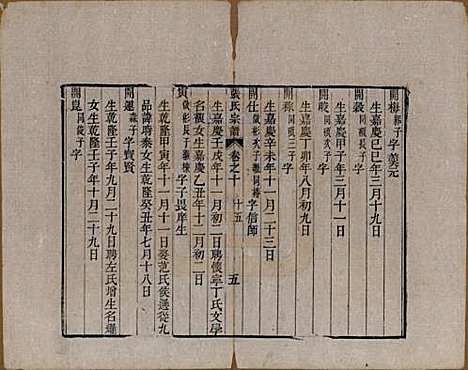 開梅 賴子 字羹元
生嘉慶己巳年三月十九日
開穀 同賴長子 字
生嘉慶甲子年三月十一日
開殷 同賴次子 字
生嘉慶丁卯年八月初九日
開稼 同賴三子 字
生嘉慶辛未年十一月二十三日
開仕 字信師
生嘉慶壬戌年十一月初二日聘懷寧丁氏文學
名觀女生嘉慶乙丑年十二月初二日
張氏宗譜 卷之十 十五 五
寅 字子畏庠生
生乾隆甲寅年十一月十一日娶范氏候選從九
品諱府泰女生乾隆癸丑年七月十八日
開運 森子 字賓賢
生乾隆壬子年九月二十九日聘左氏增生名遜
女生乾隆壬子年十月二十九日
開崑 字